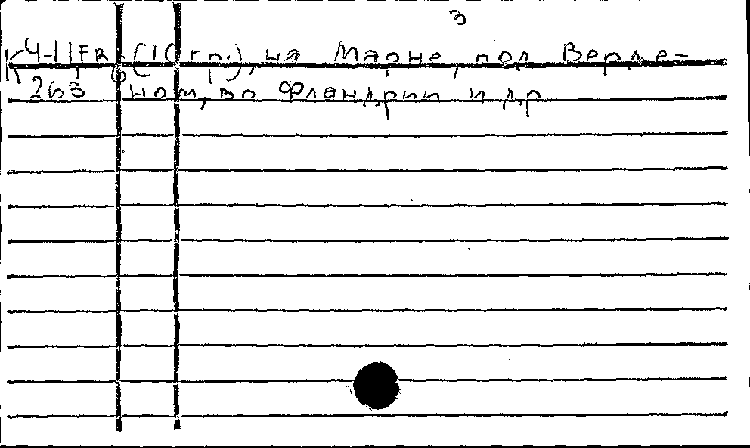 3
К4-11FR6(10гр.), на Марне, под Верде-
263 ном, во Фландрии и др